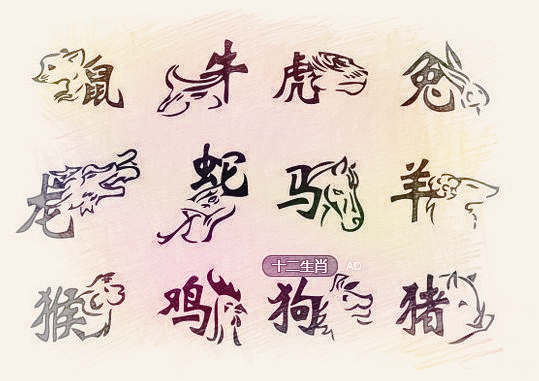 鼠 牛 虎 兔
龙 蛇 马 羊
十二生肖 AD
猴 鸡 狗 猪